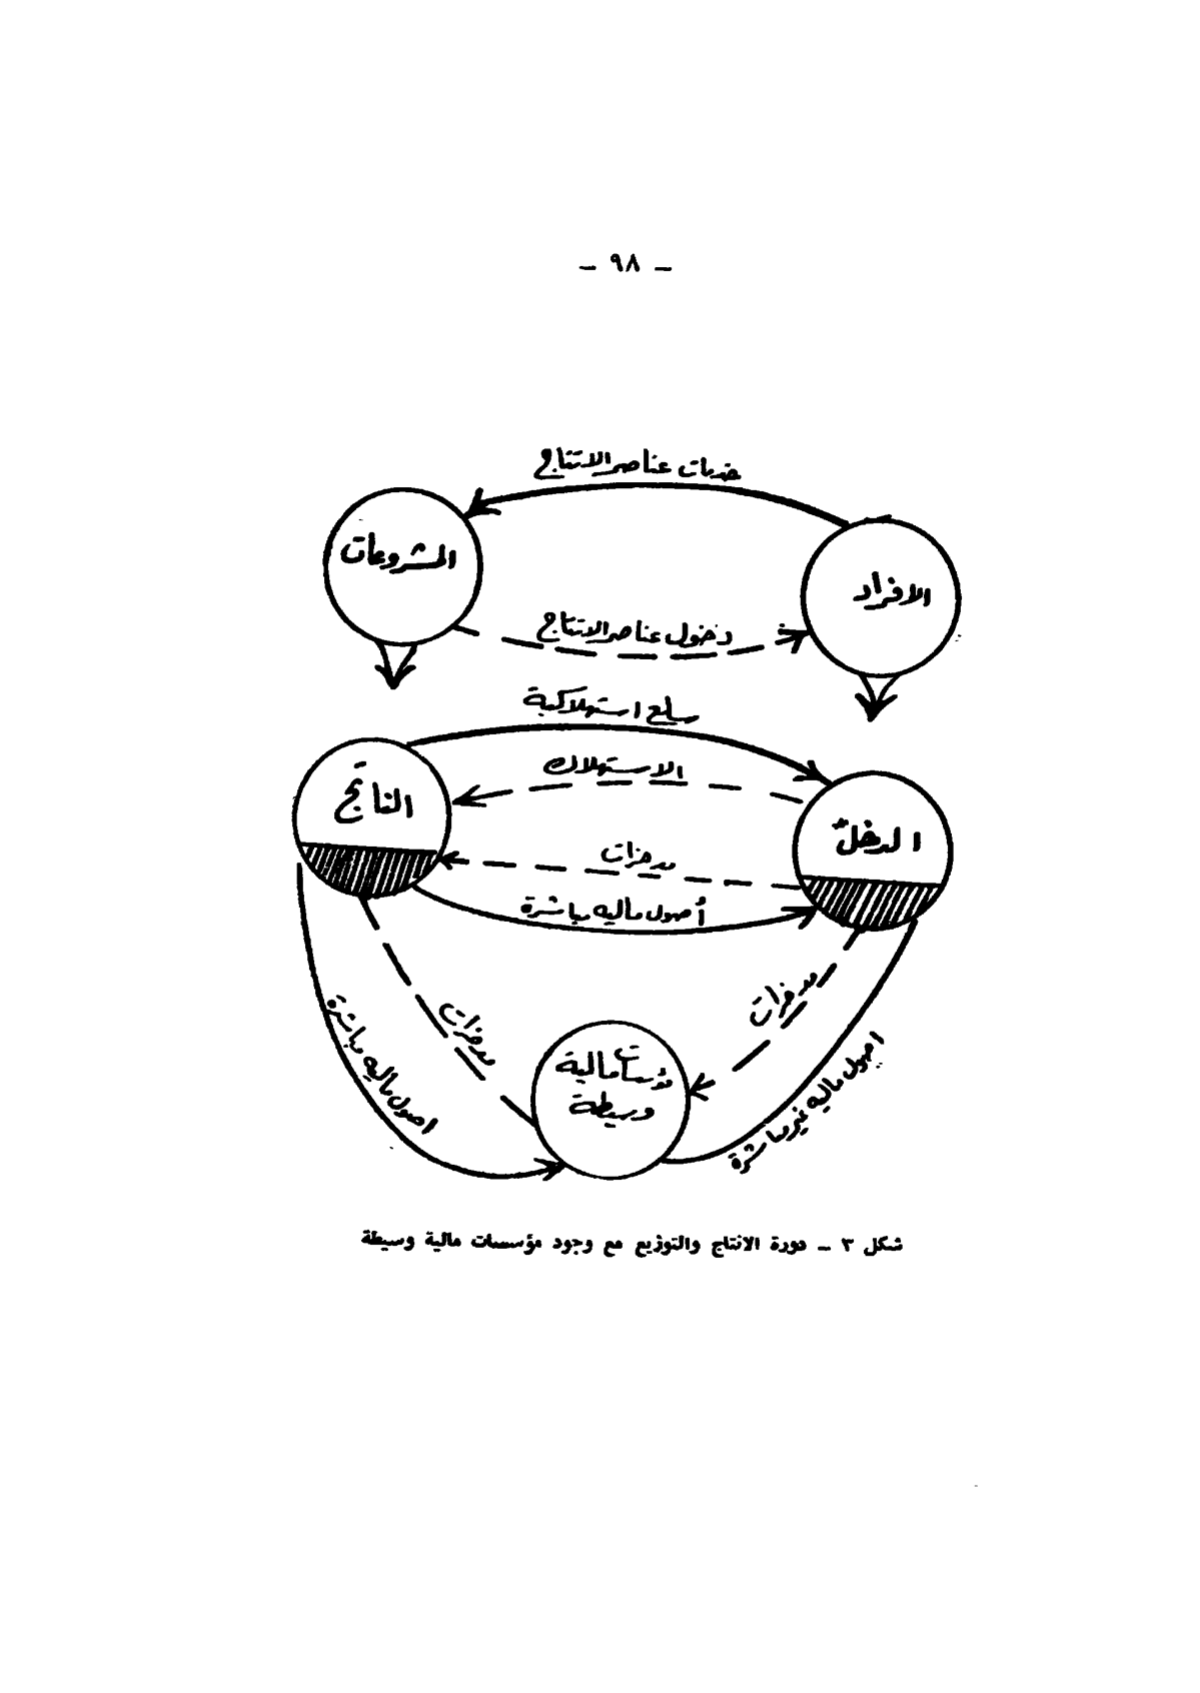 – ٩٨ –
خدمات عناصر الانتاج
المشروعات
الافراد
دخول عناصر الانتاج
سلع استهلاكية
الاستهلاك
الناتج
الدخل
مدخرات
أصول ماليه مباشرة
مدخرات
مدخرات
اصول ماليه مباشرة
اصول ماليه غير مباشرة
مؤسسات مالية
وسيطة
شكل ٣ – دورة الانتاج والتوزيع مع وجود مؤسسات مالية وسيطة